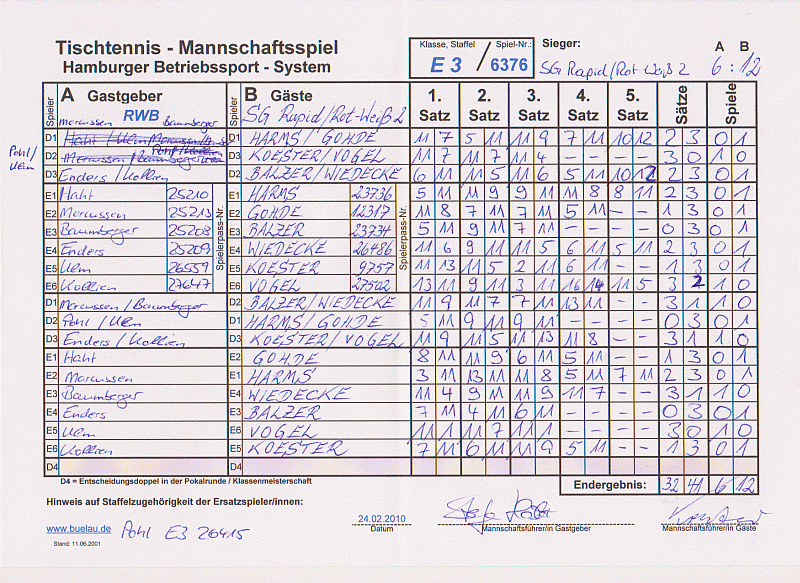 Tischtennis - Mannschaftsspiel
Hamburger Betriebssport - System
Klasse, Staffel Spiel-Nr.:
E 3 / 6376
Sieger: A B
SG Rapid/Rot-Weiß 2 6 : 12
Spieler A Gastgeber Spieler B Gäste 1. Satz 2. Satz 3. Satz 4. Satz 5. Satz Sätze Spiele
Marcussen RWB Baumberger SG Rapid/Rot-Weiß 2
Pohl/Ulm
D1 D1 HARMS/GOHDE 11 7 5 11 11 9 7 11 10 12 2 3 0 1
D2 D2 KOESTER/VOGEL 11 7 11 7 11 4 – – – – 3 0 1 0
D3 Enders/Kollien D3 BALZER/WIEDECKE 6 11 11 5 11 6 5 11 10 12 2 3 0 1
E1 Haht 25210 E1 HARMS 23736 5 11 11 9 9 11 11 8 8 11 2 3 0 1
E2 Marcussen 25213 E2 GOHDE 12317 11 8 7 11 7 11 5 11 – – 1 3 0 1
E3 Baumberger 25208 E3 BALZER 23734 5 11 9 11 7 11 – – – – 0 3 0 1
E4 Enders 25209 E4 WIEDECKE 26486 11 6 9 11 11 5 6 11 5 11 2 3 0 1
E5 Ulm 26559 E5 KOESTER 9757 11 13 11 5 2 11 6 11 – – 1 3 0 1
E6 Kollien 27647 E6 VOGEL 27502 13 11 9 11 3 11 16 14 11 5 3 2 1 0
Spielerpass-Nr. Spielerpass-Nr.
D1 Marcussen/Baumberger D2 BALZER/WIEDECKE 11 9 11 7 7 11 13 11 – – 3 1 1 0
D2 Pohl/Ulm D1 HARMS/GOHDE 5 11 9 11 9 11 – – – – 0 3 0 1
D3 Enders/Kollien D3 KOESTER/VOGEL 11 9 11 5 11 13 11 8 – – 3 1 1 0
E1 Haht E2 GOHDE 8 11 11 9 6 11 5 11 – – 1 3 0 1
E2 Marcussen E1 HARMS 3 11 13 11 11 8 5 11 7 11 2 3 0 1
E3 Baumberger E4 WIEDECKE 11 4 9 11 11 9 11 7 – – 3 1 1 0
E4 Enders E3 BALZER 7 11 4 11 6 11 – – – – 0 3 0 1
E5 Ulm E6 VOGEL 11 1 11 7 11 1 – – – – 3 0 1 0
E6 Kollien E5 KOESTER 7 11 6 11 11 9 5 11 – – 1 3 0 1
D4 D4
D4 = Entscheidungsdoppel in der Pokalrunde / Klassenmeisterschaft
Endergebnis: 32 41 6 12
Hinweis auf Staffelzugehörigkeit der Ersatzspieler/innen:
www.buelau.de Pohl E3 26415
24.02.2010
Datum Mannschaftsführer/in Gastgeber Mannschaftsführer/in Gäste
Stand: 11.06.2001